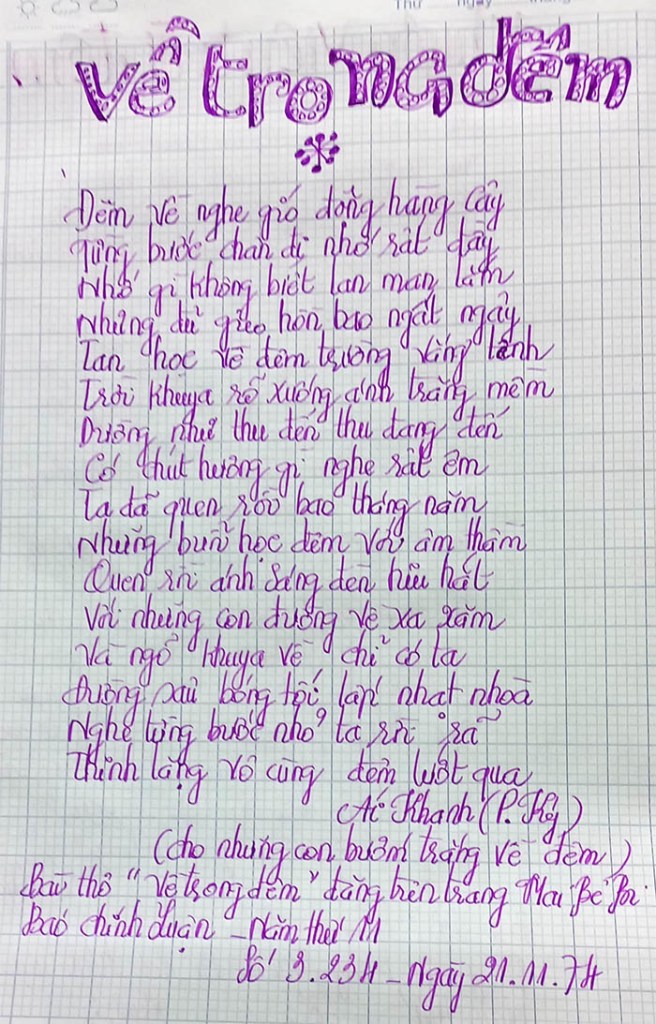 Về trong đêm
Đêm về nghe gió động hàng cây
Từng bước chân đi nhớ rất đầy
Nhớ gì không biết lan man lắm
Những dư gieo hồn bao ngất ngây
Tan học về đêm trường vắng lạnh
Trời khuya rớ xuống ánh trăng mềm
Dường như thu đến thu đang đến
Có chút hương gì nghe rất êm
Ta đã quen rồi bao tháng năm
Những buổi học đêm với âm thầm
Quen rồi ánh sáng đèn hiu hắt
Với những con đường về xa xăm
Và ngõ khuya về chỉ có ta
Đường sau bóng tối lấp nhạt nhoà
Nghe từng bước nhỏ ta rời rã
Thinh lặng vô cùng đêm lướt qua
Ái Khanh (P. Ký)
(cho những con bướm trắng về đêm)
Bài thơ "Về trong đêm" đăng trên trang Mai Bê Bi
Báo chính luận - Năm thứ 11
Số 3.234 - Ngày 21.11.74